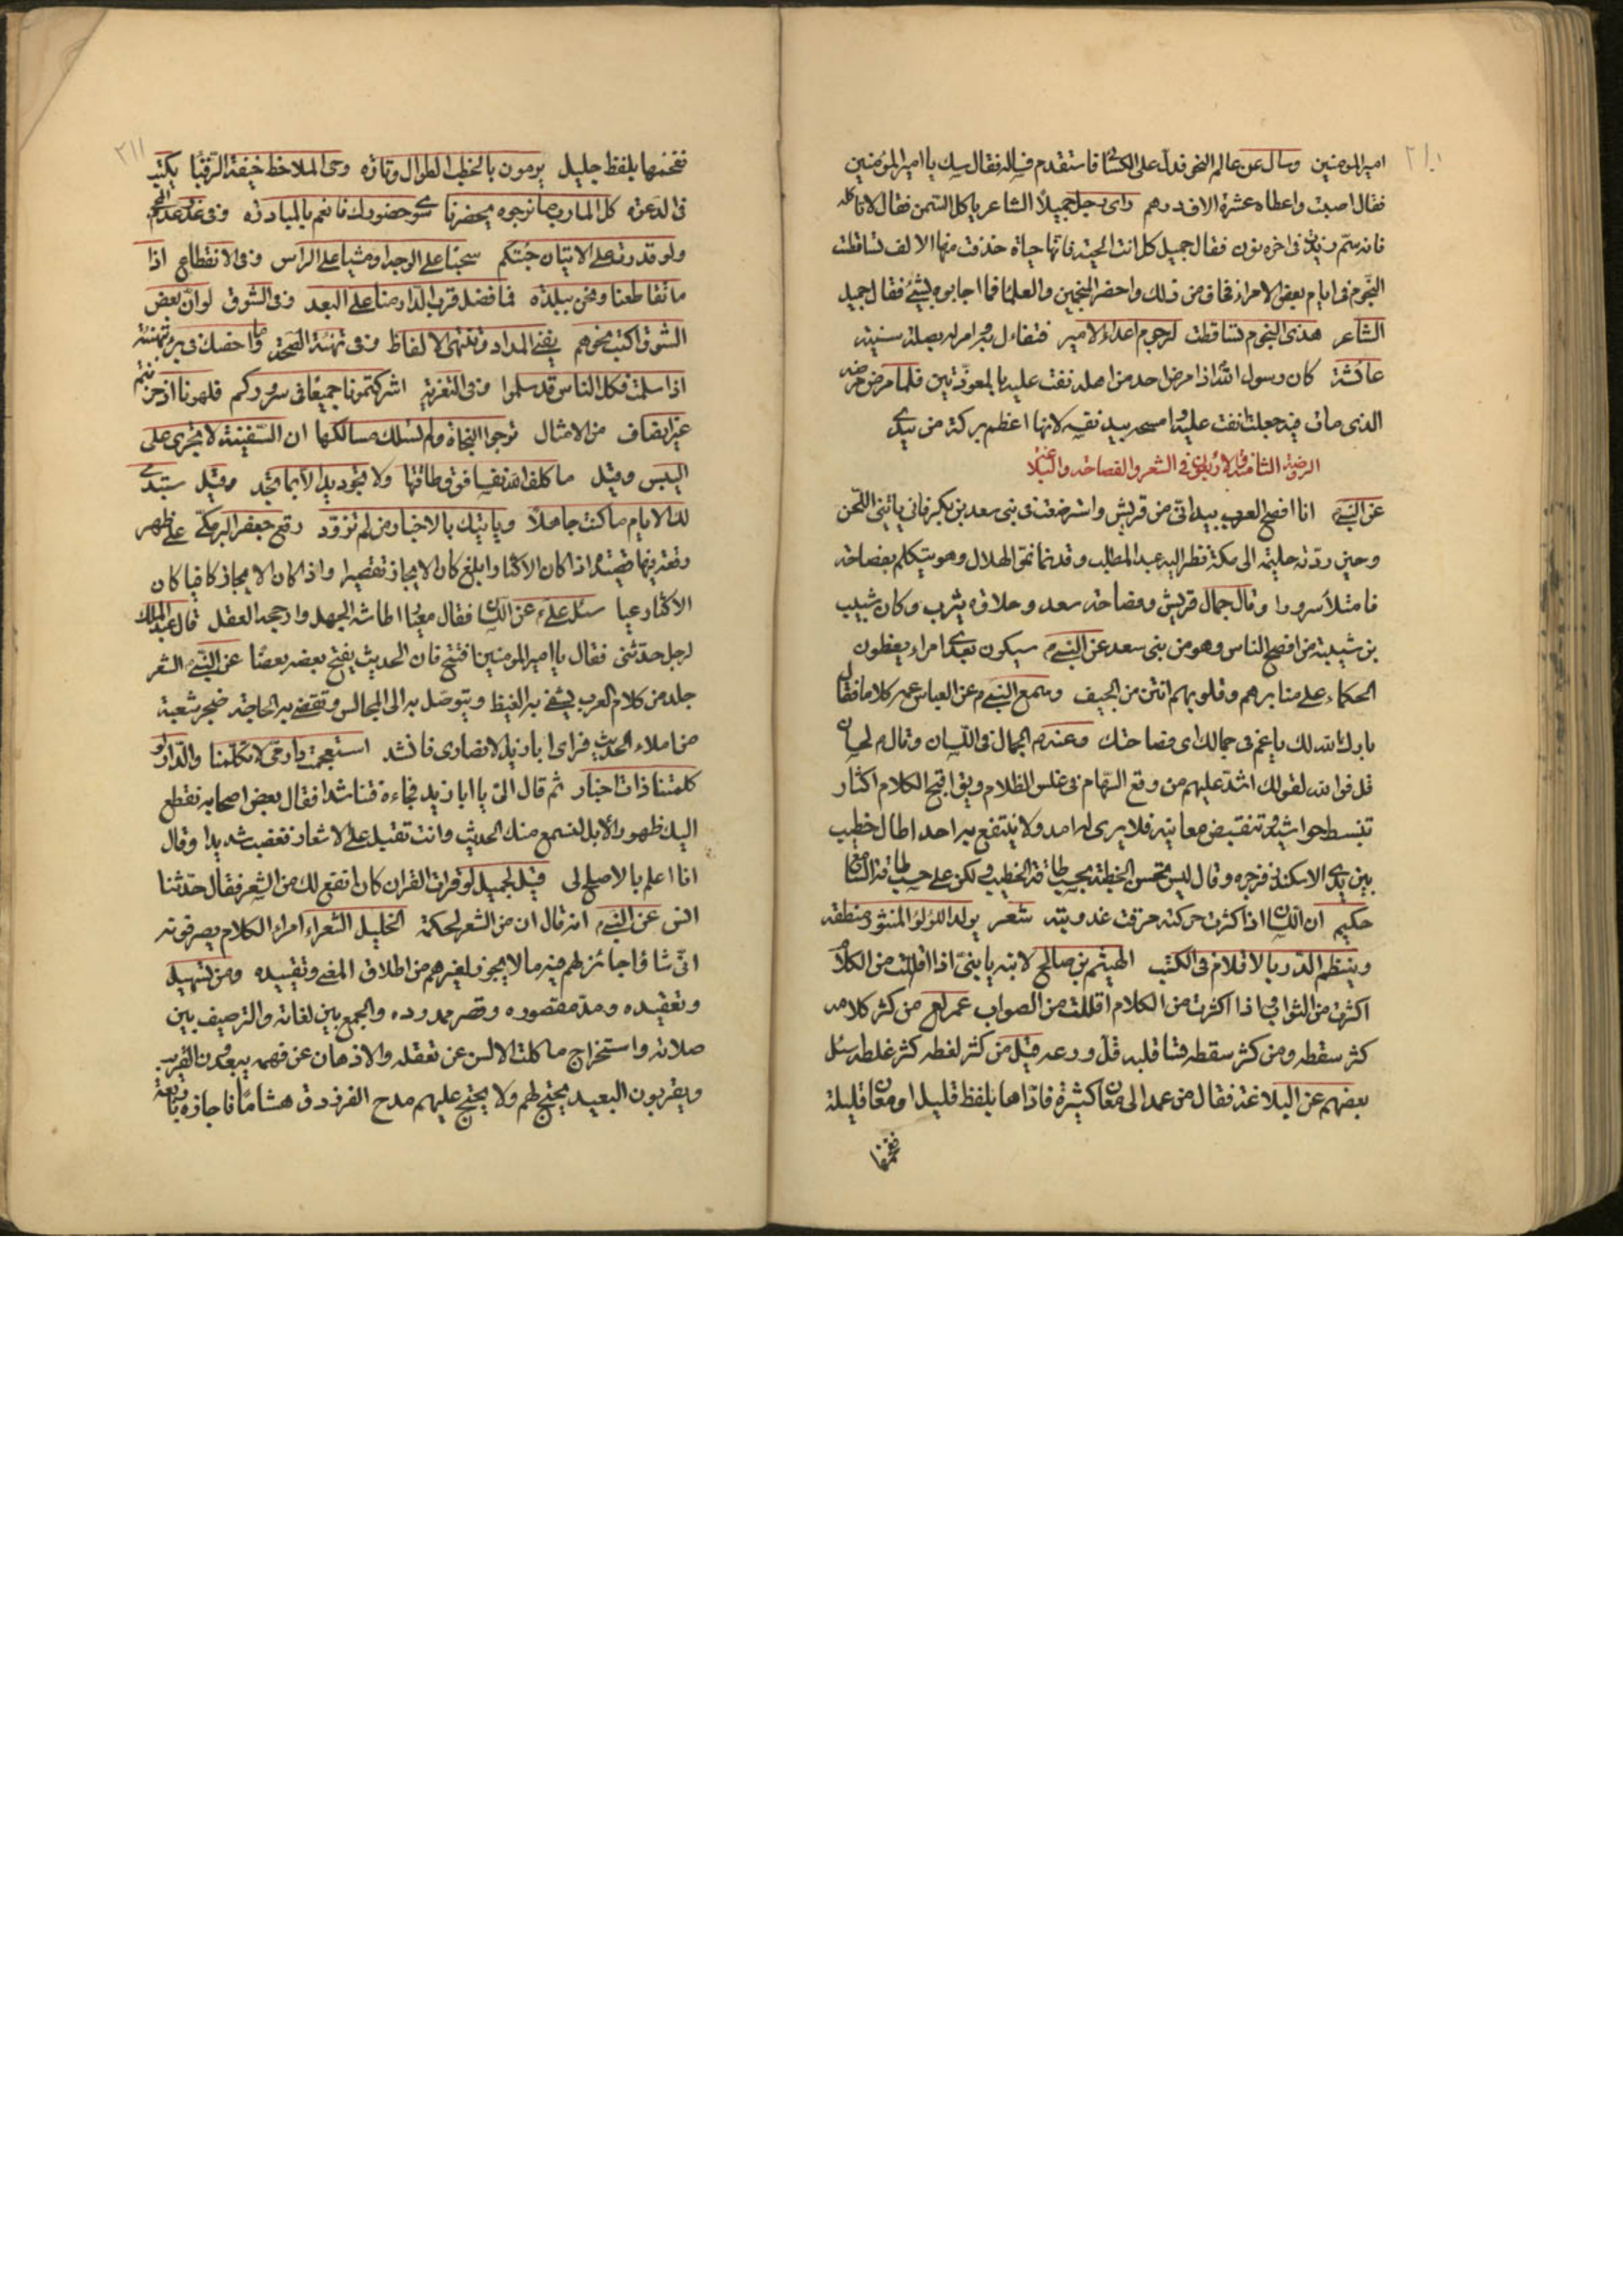 ٢١٠
امير المؤمنين وسال عن عالم النحو فدل على الكسائي فاستقدم فساله فقال سك يا امير المؤمنين
فقال اصبت واعطاه عشرة الاف درهم راى رجل جميلا الشاعر ياكل السمن فقال لا تاكله
فانه سم فقال جميل كل انت الحية فانها حياة حذفت منها الالف تساقطت
النجوم في ايام بعض الامراء فخاف من ذلك واحضر المنجمين والعلما فما اجابوه بشئ فقال جميل
الشاعر هذى النجوم تساقطت لرجوم اعداء الامير فتفاءل به وامر له بصلة سنية
عائشة كان رسول الله اذا مرض احد من اهله نفث عليه بالمعوذتين فلما مرض مرضه
الذى مات فيه جعلت انفث عليه وامسحه بيد نفسه لانها اعظم بركة من يدى
الروضة الثامنة والاربعون في الشعر والفصاحة والبلاغة
عن النبي انا افصح العرب بيد اني من قريش واسترضعت في بني سعد بن بكر فاني ياتيني اللحن
وحين ردته حليمة الى مكة نظر اليه عبد المطلب وقد نما نمو الهلال وهو يتكلم بفصاحة
فامتلأ سرورا وقال جمال قريش وفصاحة سعد وحلاوة يثرب وكان شبيب
بن شيبة من افصح الناس وهو من بني سعد عن النبي سيكون بعدى امراء يعظون
الحكماء على منابرهم وقلوبهم انتن من الجيف وسمع النبي من العباس عمه كلاما فقال
بارك الله لك يا عم في جمالك اى فصاحتك وعنه الجمال في اللسان وقال لحسان
قل فوالله لقولك اشد عليهم من وقع السهام في غلس الظلام ويق اقبح الكلام اكثار
تنبسط حواشيه وتنقبض معانيه فلا يرى له امد ولا ينتفع به احد اطال خطيب
بين يدى الاسكندر فزجره وقال ليس تحسن الخطبة بحسب طاقة الخطيب ولكن على حسب طاقة السامع
حكيم ان اللسان اذا كثرت حركته مرقت عذوبته شعر يولد اللؤلؤ المنثور منطقه
وينظم الدر بالاقلام في الكتب الهيثم بن صالح لابنه يا بني اذا اقللت من الكلام
اكثرت من الثواب واذا اكثرت من الكلام اقللت من الصواب عمر من كثر كلامه
كثر سقطه ومن كثر سقطه قسا قلبه قل ورعه قيل من كثر لغطه كثر غلطه سئل
بعضهم عن البلاغة فقال من عمد الى معان كثيرة فاداها بلفظ قليل او معان قليلة
ففخمها
٢١١
ففخمها بلفظ جليل يرمون بالخطب الطوال وتارة وحى الملاحظ خيفة الرقباء يكتب
في الدعوة كل المارب ما نرجوه يحضرنا سوى حضورك فانعم بالمبادرة وفي عذر عدم
ولو قدرت على الاتيان جئتكم سحبا على الوجه او مشيا على الراس وفي الانقطاع اذا
ما تقاطعنا ونحن ببلدة فما فضل قرب الدار منا على البعد وفي الشوق لو ان بعض
الشوق اكتب نحوهم يفنى المداد وتنتهي الالفاظ وفي تهنئة الصحة وما اخصك في برء بتهنئة
اذا سلمت فكل الناس قد سلموا وفي التعزية اشركتمونا جميعا في سروركم فلهونا اذ حزنتم
غير انصاف من الامثال ترجو النجاة ولم تسلك مسالكها ان السفينة لا تجرى على
اليبس وقيل ما كلف الله نفسا فوق طاقتها ولا تجود يد الا بما تجد وقيل ستبدى
لك الايام ما كنت جاهلا وياتيك بالاخبار من لم تزود رفع جعفر البرمكي على ظهر
رقعة فيها قصته اذا كان الاكثار ابلغ كان الايجاز تقصيرا واذا كان الايجاز كافيا كان
الاكثار عيا سئل على عن اللسان فقال معيار اطاشه الجهل وارجحه العقل قال عبد الملك
لرجل حدثني فقال يا امير المؤمنين افتتح فان الحديث يفتح بعضه بعضا عن النبي الشعر
جلد من كلام العرب يشفى به الغيظ ويتوصل به الى المجالس وتقضى به الحاجة ضجر شعبة
من املاء الحديث فراى ابا زيد الانصارى فانشد استعجمت دار مى لا تكلمنا والدار لو
كلمتنا ذات اخبار ثم قال الى يا ابا زيد فجاءه فتناشدا فقال بعض اصحابه نقطع
اليك ظهور الابل لنسمع منك الحديث وانت تقبل على الاشعار فغضب شديدا وقال
انا اعلم بالاصلح لى قيل لجميل لو قرات القران كان انفع لك من الشعر فقال حدثنا
انس عن النبي انه قال ان من الشعر لحكمة الخليل الشعراء امراء الكلام يصرفونه
انى شاؤا جائز لهم فيه ما لا يجوز لغيرهم من اطلاق المعنى وتقييده ومن تسهيله
وتعقيده ومد مقصوره وقصر ممدوده والجمع بين لغاته والترصيف بين
صلاته واستخراج ما كلت الالسن عن تعقله والاذهان عن فهمه يبعدون القريب
ويقربون البعيد يحتج لهم ولا يحتج عليهم مدح الفرزدق هشاما فاجازه